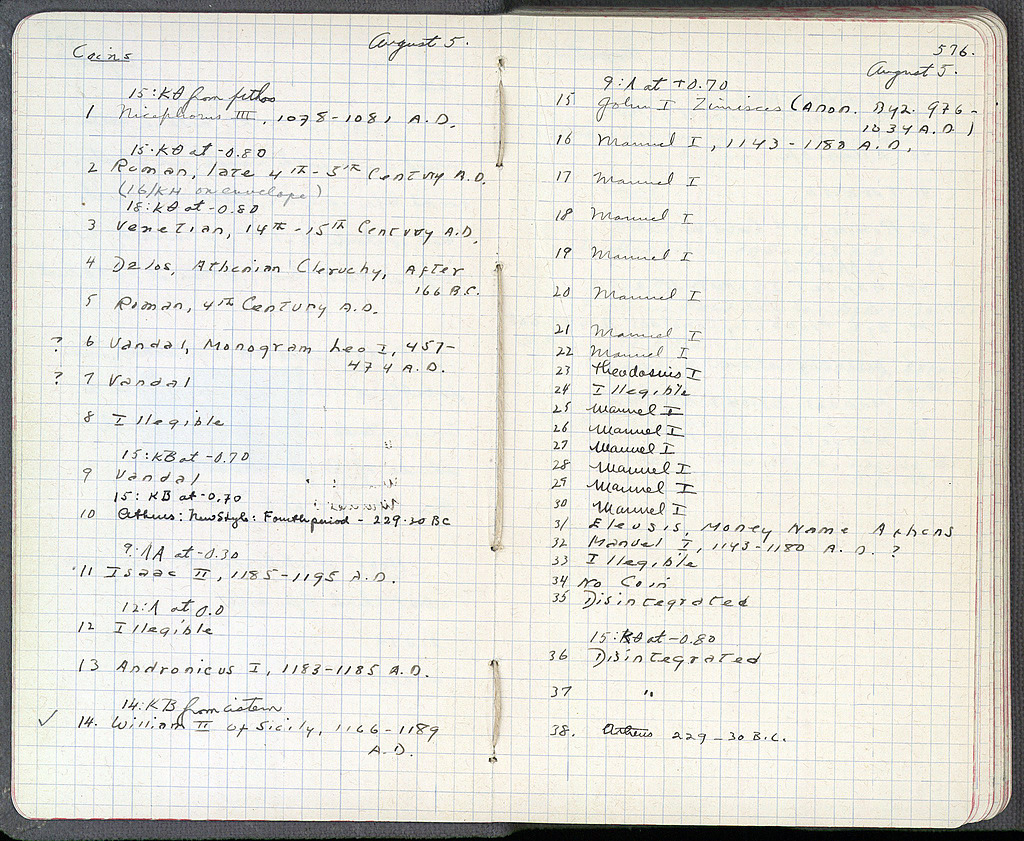 August 5.
Coins
15:ΚΘ from pithos
1 Nicephorus III, 1078-1081 A.D.
15:ΚΘ at -0.80
2 Roman, late 4th-5th Century A.D.
(16/ΚΗ on envelope)
18:ΚΘ at -0.80
3 Venetian, 14th-15th Century A.D.
4 Delos, Athenian Cleruchy, After
166 B.C.
5 Roman, 4th Century A.D.
? 6 Vandal, Monogram Leo I, 457-
474 A.D.
? 7 Vandal
8 Illegible
15:ΚΒ at -0.70
9 Vandal
15:ΚΒ at -0.70
10 Athens: New Style: Fourth period - 229-30 BC
9:ΛΑ at -0.30
11 Isaac II, 1185-1195 A.D.
12:Λ at 0.0
12 Illegible
13 Andronicus I, 1183-1185 A.D.
14:ΚΒ from cistern
✓ 14. William II of Sicily, 1166-1189
A.D.
576.
August 5.
9:Λ at +0.70
15 John I Zimisces (Anon. Byz. 976-
1034 A.D.)
16 Manuel I, 1143-1180 A.D.
17 Manuel I
18 Manuel I
19 Manuel I
20 Manuel I
21 Manuel I
22 Manuel I
23 Theodosius I
24 Illegible
25 Manuel I
26 Manuel I
27 Manuel I
28 Manuel I
29 Manuel I
30 Manuel I
31 Eleusis, Money Name Athens
32 Manuel I, 1143-1180 A.D. ?
33 Illegible
34 No Coin
35 Disintegrated
15:ΚΘ at -0.80
36 Disintegrated
37 "
38. Athens 229-30 B.C.